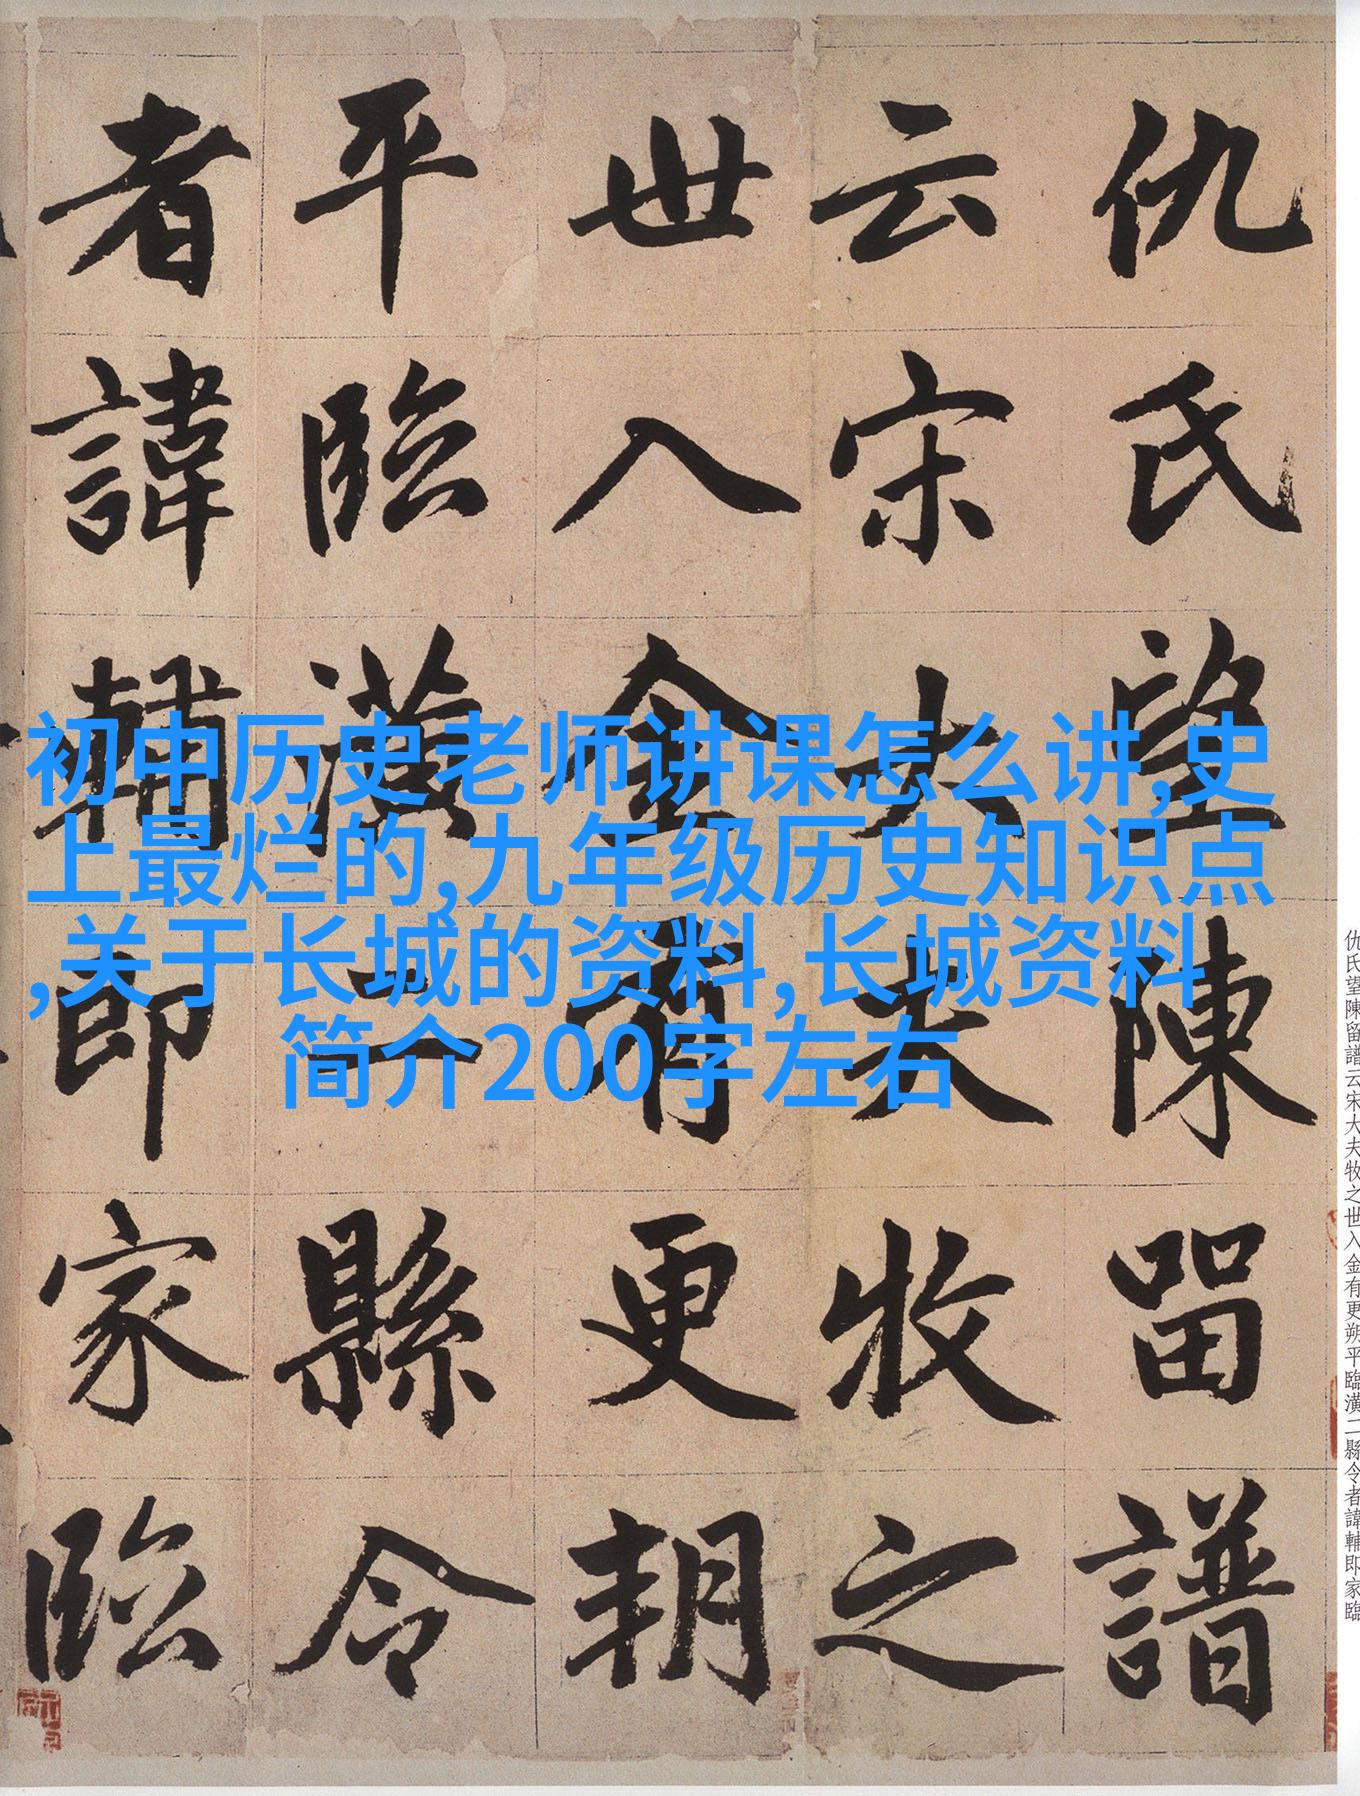 仇氏望陳留譜
云宋大夫牧之
世入金有更朔
平臨潢二縣令
者諱輔即家臨
初中历史老师讲课怎么讲,史
上最烂的,九年级历史知识点
,关于长城的资料,长城资料
简介200字左右
仇氏望陳留譜云宋大夫牧之世入金有更朔平臨潢二縣令者諱輔即家臨